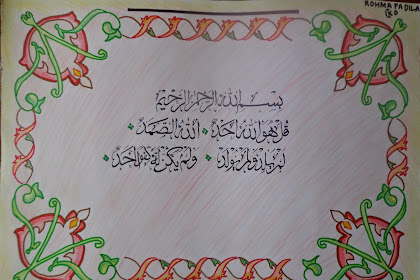 ROHMA FADILA
بسم الله الرحمن الرحيم
قل هو الله أحد الله الصمد
لم يلد ولم يولد ولم يكن له كفوا أحد